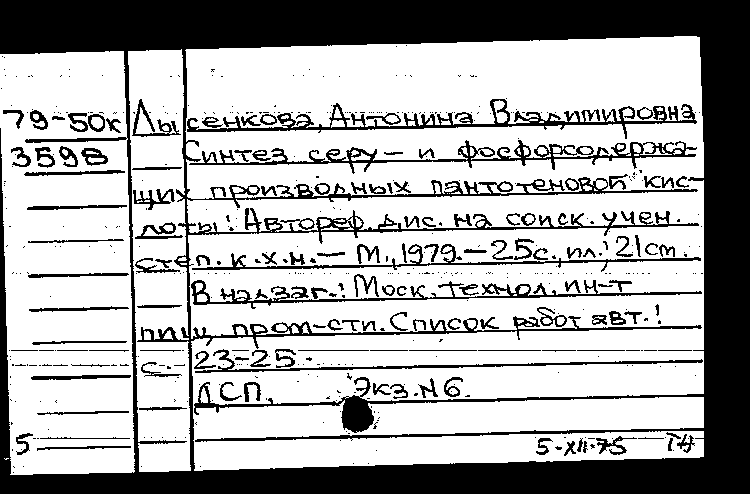 79-50к Лысенкова, Антонина Владимировна
3598 Синтез серу- и фосфорсодержа-
щих производных пантотеновой кис-
лоты: Автореф. дис. на соиск. учен.
степ. к.х.н. - М., 1979. - 25с., ил.; 21см.
В надзаг.: Моск. технол. ин-т
пищ. пром-сти. Список работ авт.:
с. 23-25.
ДСП. Экз.N6.
5 5-XII-75